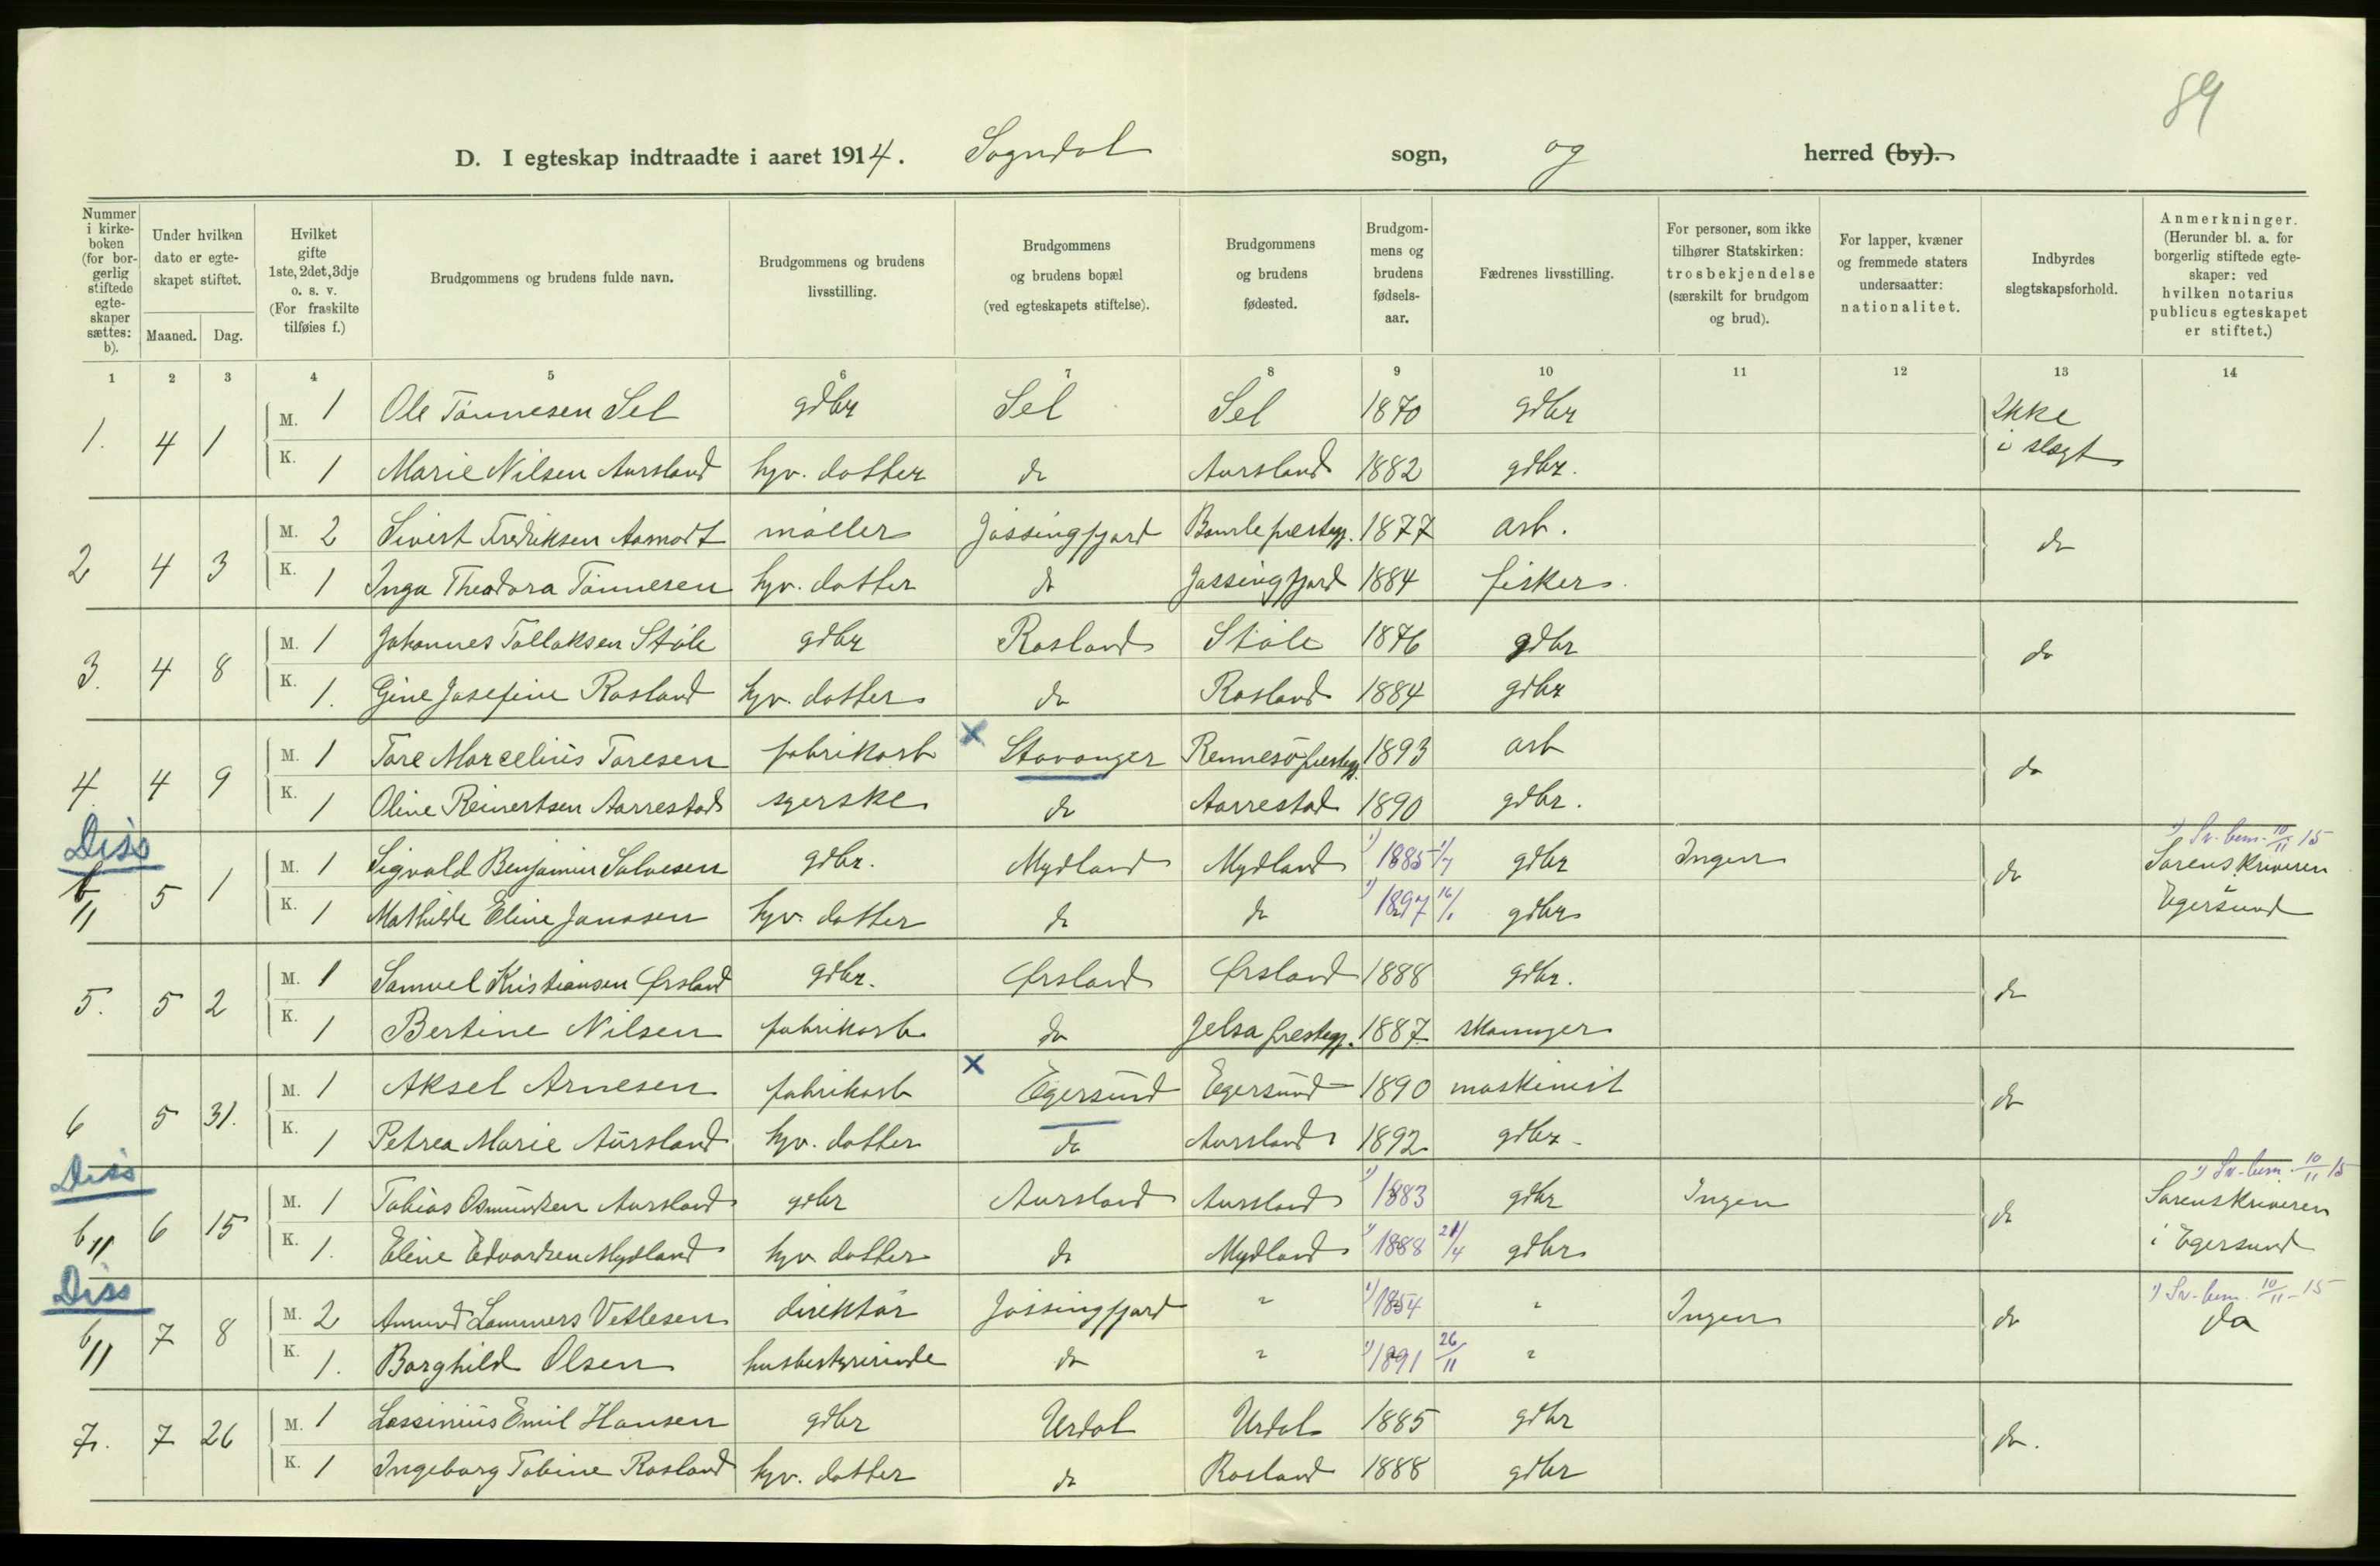 89
D. I egteskap indtraadte i aaret 1914. Sogndal sogn, og herred (by).
Nummer i kirkeboken (for borgerlig stiftede egteskaper sættes: b).
Under hvilken dato er egteskapet stiftet.
Maaned. Dag.
Hvilket gifte 1ste, 2det, 3dje o. s. v. (For fraskilte tilføies f.)
Brudgommens og brudens fulde navn.
Brudgommens og brudens livsstilling.
Brudgommens og brudens bopæl (ved egteskapets stiftelse).
Brudgommens og brudens fødested.
Brudgommens og brudens fødselsaar.
Fædrenes livsstilling.
For personer, som ikke tilhører Statskirken: trosbekjendelse (særskilt for brudgom og brud).
For lapper, kvæner og fremmede staters undersaatter: nationalitet.
Indbyrdes slegtskapsforhold.
Anmerkninger. (Herunder bl. a. for borgerlig stiftede egteskaper: ved hvilken notarius publicus egteskapet er stiftet.)
1 2 3 4 5 6 7 8 9 10 11 12 13 14
1. 4 1 M. 1 Ole Tönnesen Sel gdbr Sel Sel 1870 gdbr Ikke i slegt
K. 1 Marie Nilsen Aursland hjv. datter do Aursland 1882 gdbr.
2 4 3 M. 2 Sivert Fredriksen Aamodt möller Jössingfjord Bamle prestegj. 1877 arb. do
K. 1 Inga Theodora Tönnesen hjv. datter do Jössingfjord 1884 fisker
3. 4 8 M. 1 Johannes Tollaksen Stöle gdbr Rosland Stöle 1876 gdbr do
K. 1. Gine Josefine Rosland hjv. datter do Rosland 1884 gdbr
4. 4 9 M. 1 Tore Marcelius Toresen fabrikarb x Stavanger Rennesö prestegj. 1893 arb do
K. 1 Oline Reinertsen Aarrestad syerske do Aarrestad 1890 gdbr.
Diss
b 11 5 1 M. 1 Sigvald Benjamin Salvesen gdbr. Mydland Mydland 1) 1885 1/7 gdbr Ingen do 1) Sv. bem. 10/11-15 Sorenskriveren Egersund
K. 1 Mathilde Eline Janosen hjv. datter do do 1) 1897 16/1 gdbr
5. 5 2 M. 1 Samuel Kristiansen Ørsland gdbr. Ørsland Ørsland 1888 gdbr. do
K. 1 Bertine Nilsen fabrikarb do Jelsa prestegj. 1887 skomager
6 5 31. M. 1 Aksel Arnesen fabrikarb x Egersund Egersund 1890 maskinist do
K. 1 Petrea Marie Aursland hjv. datter do Aursland 1892 gdbr.
Diss
b 11 6 15 M. 1 Tobias Osmundsen Aursland gdbr Aursland Aursland 1) 1883 gdbr Ingen do 1) Sv. bem. 10/11 15 Sorenskriveren i Egersund
K. 1. Eline Edvardsen Mydland hjv datter do Mydland 1) 1888 21/4 gdbr
Diss
b 11 7 8 M. 2 Amund Lammers Vetlesen direktör Jössingfjord " 1) 1854 " Ingen do 1) Sv. bem. 10/11-15 do
K. 1. Borghild Olsen husbestyrerinde do " 1) 1891 26/11 "
7. 7 26 M. 1 Lassinius Emil Hansen gdbr Urdal Urdal 1885 gdbr do.
K. 1 Ingeborg Tobine Rosland hjv. datter do Rosland 1888 gdbr